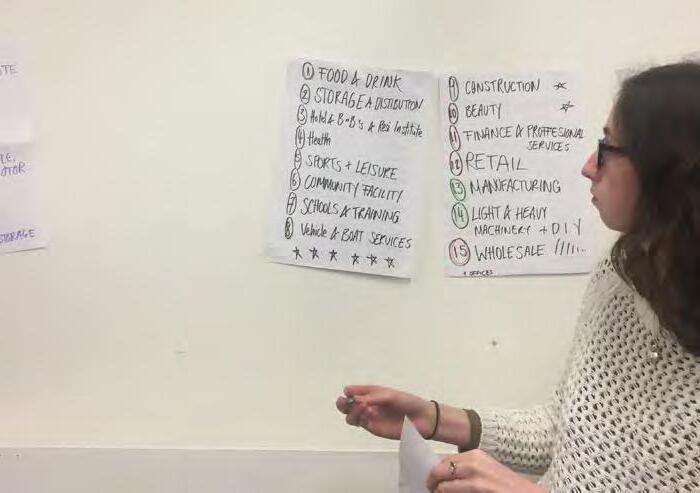 TE
LE,
OTOR
STORAGE
① FOOD & DRINK
② STORAGE & DISTIBUTION
③ Hotel & B+B's & Resi Institute
④ Health
⑤ SPORTS + LEISURE
⑥ COMMUNITY FACILITY
⑦ SCHOOLS & TRAINING
⑧ Vehicle & BOAT SERVICES
⑨ CONSTRUCTION
⑩ BEAUTY
⑪ FINANCE & PROFFESIONAL
SERVICES
⑫ RETAIL
⑬ MANUFACTURING
⑭ LIGHT & HEAVY
MACHINERY + DIY
⑮ WHOLESALE
OFFICES